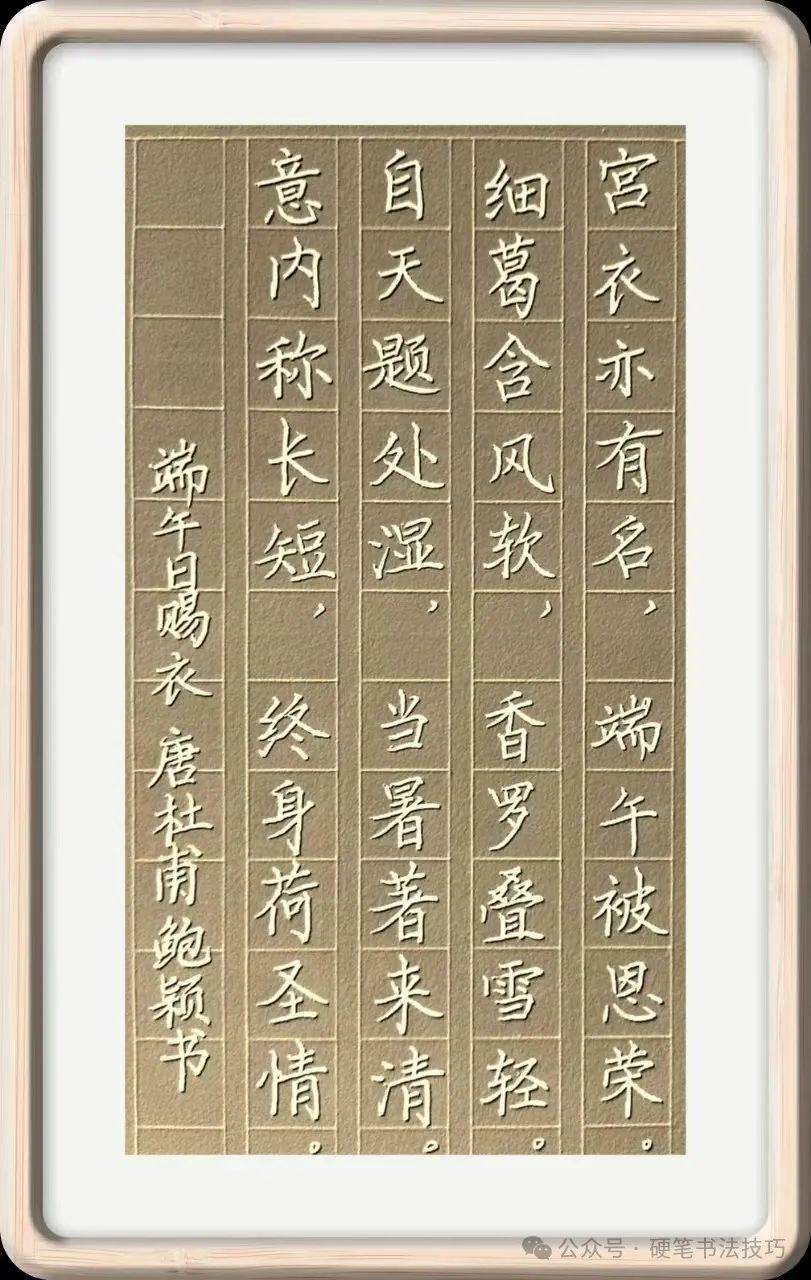 宫衣亦有名，端午被恩荣。
细葛含风软，香罗叠雪轻。
自天题处湿，当暑著来清。
意内称长短，终身荷圣情。
端午日赐衣 唐杜甫 鲍颖书
公众号·硬笔书法技巧